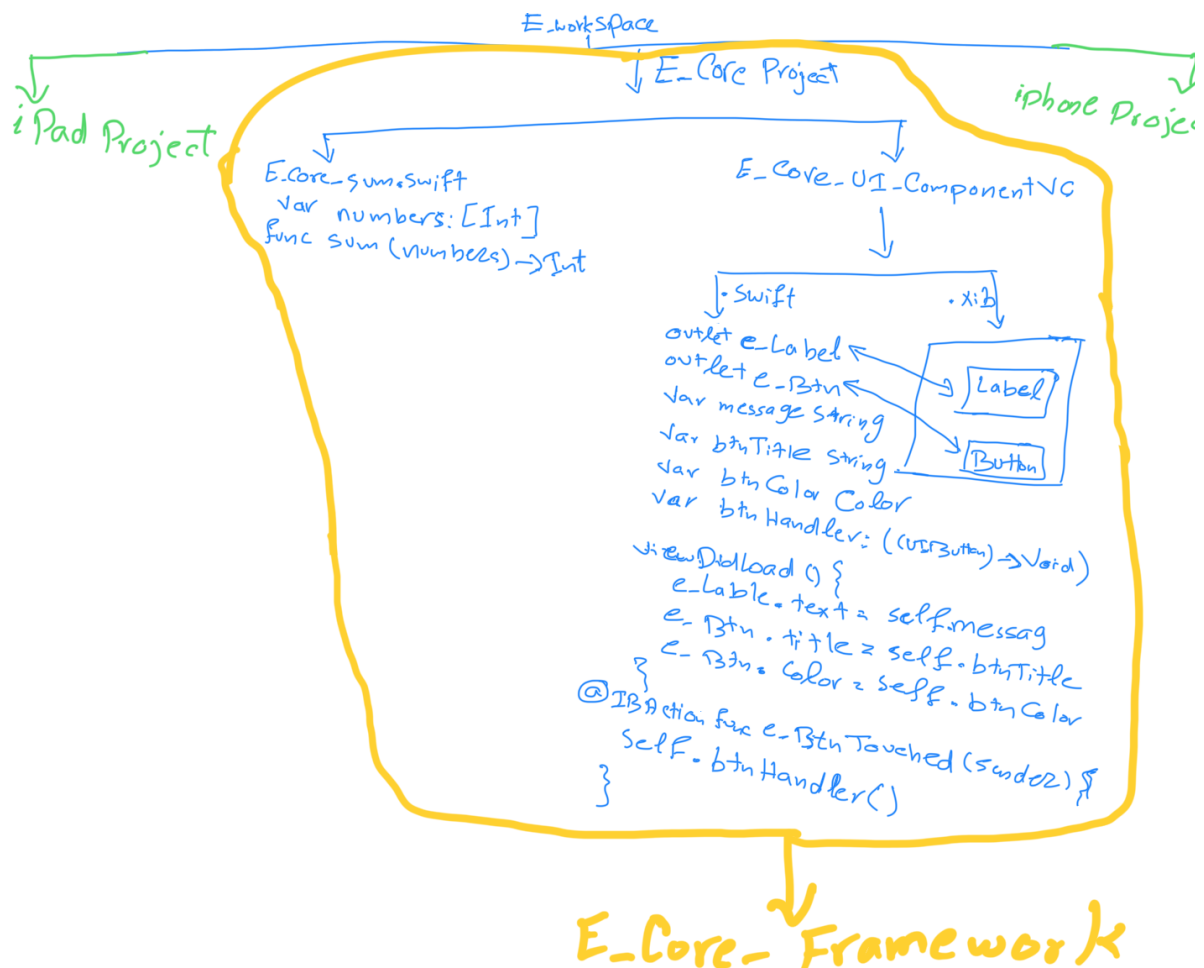 E_workspace
E_Core Project
iPad Project
iphone Projec
E_Core_sum.swift
var numbers: [Int]
func sum (numbers) → Int
E_Core_UI_ComponentVC
.swift
.xib
outlet e_Label
outlet e_Btn
Var message string
Var btnTitle string
Var btnColor Color
Var btnHandler: ((UIButton) → Void)
Label
Button
viewDidLoad () {
e_Lable.text = self.messag
e_Btn.title = self.btnTitle
e_Btn.Color = self.btnColor
}
@IBAction func e_BtnTouched (sender) {
Self.btnHandler()
}
E_Core_Framework